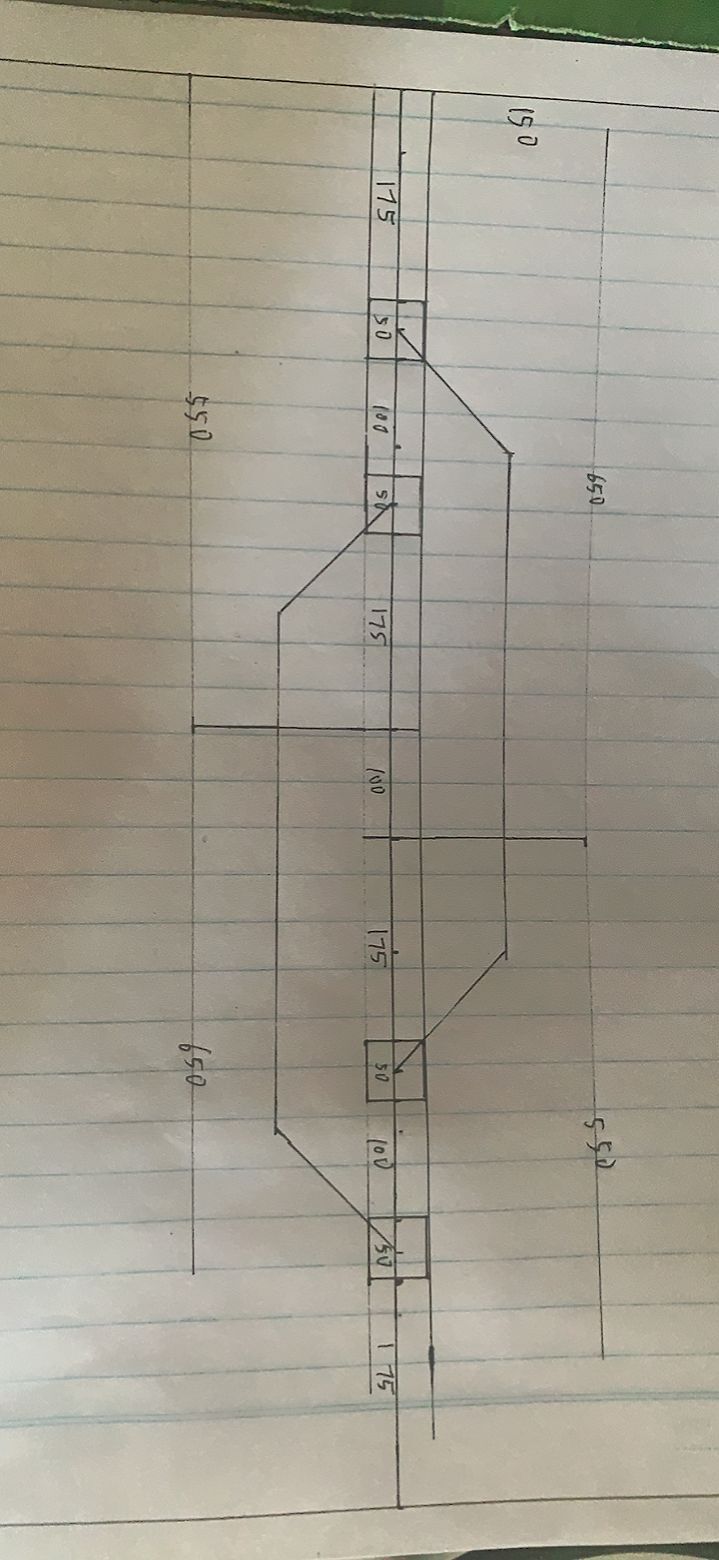 650 550
150
175 50 100 50 175 100 175 50 100 50 175
550 650